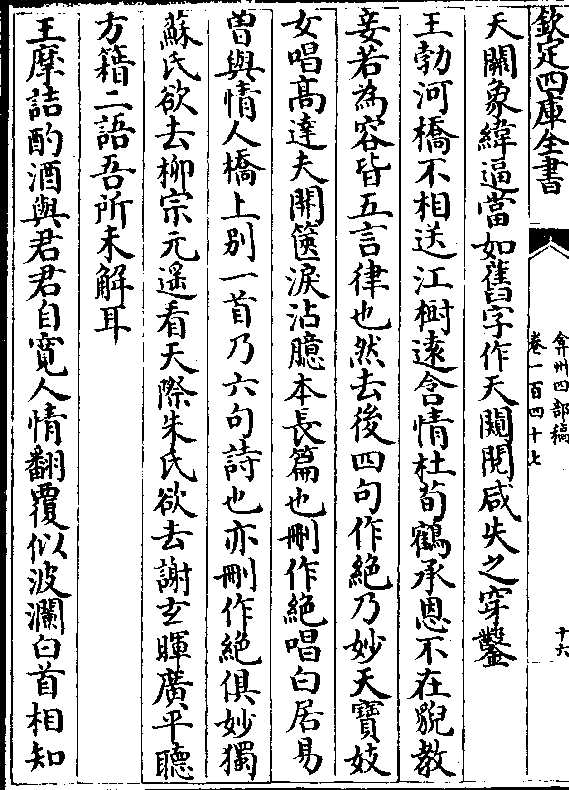 欽定四庫全書
弇州四部稿
卷一百四十七
十六
天關象緯逼當如舊字作天闚閱咸失之穿鑿
王勃河橋不相送江樹遠含情杜荀鶴承恩不在貎教
妾若為容皆五言律也然去後四句作絶乃妙天寶妓
女唱髙達夫開篋淚沾臆本長篇也刪作絶唱白居易
曽與情人橋上别一首乃六句詩也亦刪作絶俱妙獨
蘇氏欲去柳宗元遥看天際朱氏欲去謝玄暉廣平聽
方籍二語吾所未解耳
王摩詰酌酒與君君自寛人情翻覆似波瀾白首相知